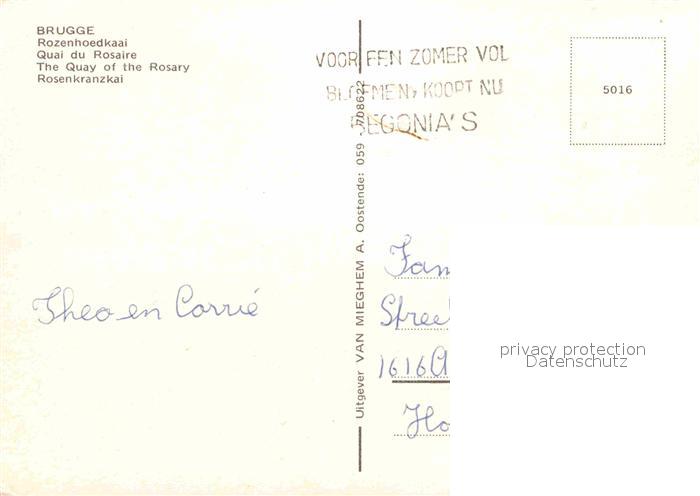 BRUGGE
Rozenhoedkaai
Quai du Rosaire
The Quay of the Rosary
Rosenkranzkai
VOOR EEN ZOMER VOL
BLOEMEN, KOOPT NU
BEGONIA'S
5016
Uitgever VAN MIEGHEM A. Oostende: 059 - 708622
Theo en Corrie
Fam
Stree
1616A
Ho
privacy protection
Datenschutz